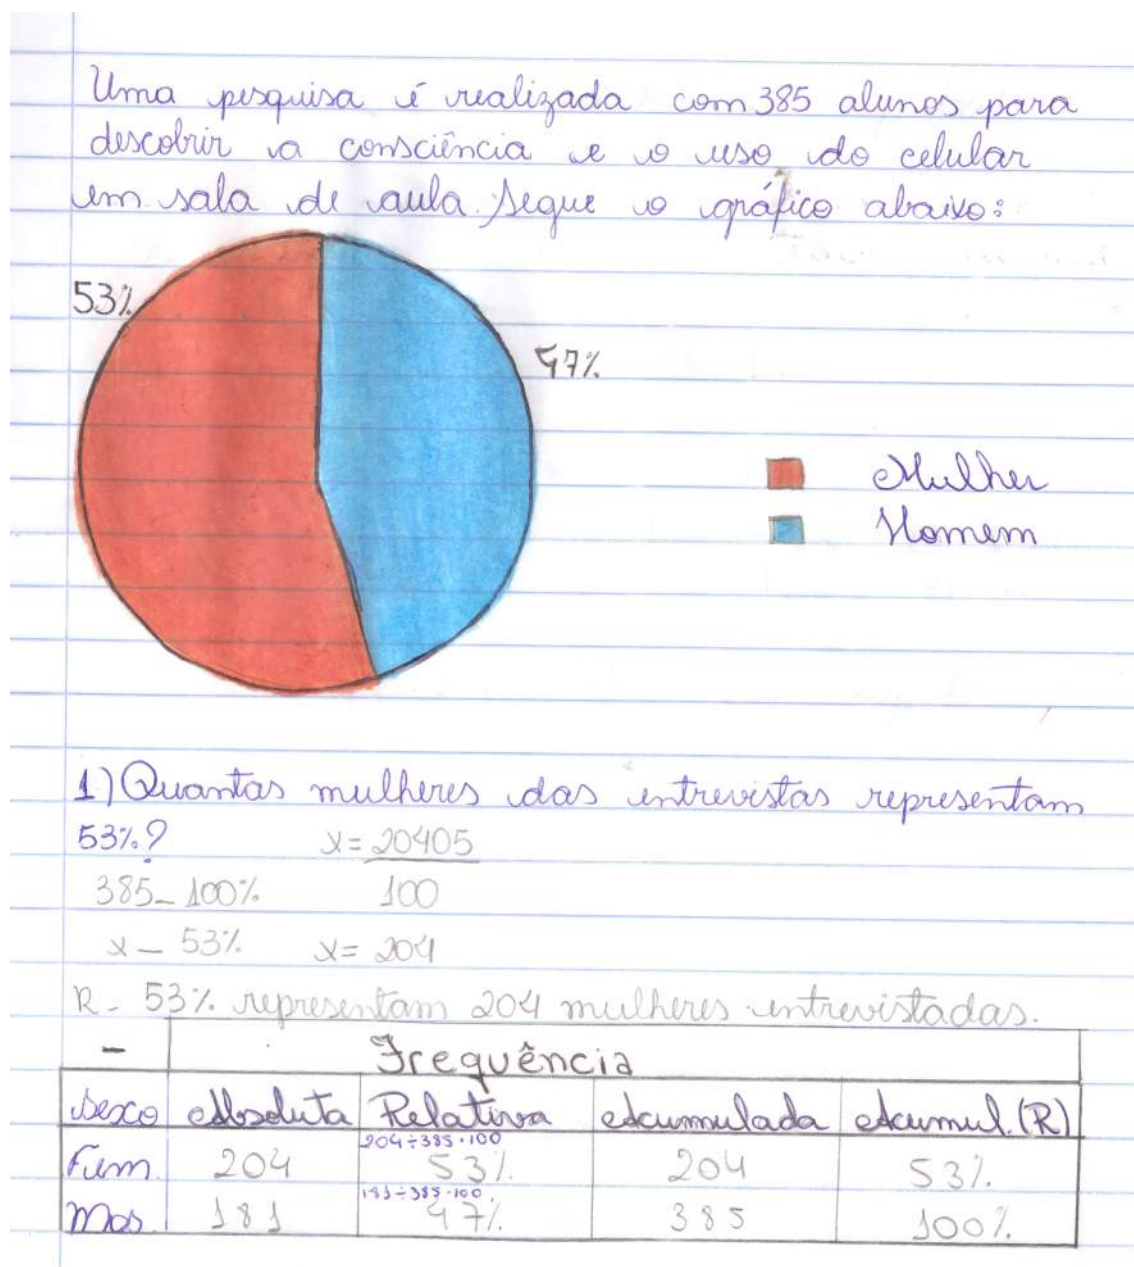 Uma pesquisa é realizada com 385 alunos para
descobrir a consciência e o uso do celular
em sala de aula. Segue o gráfico abaixo:
53%
47%
Mulher
Homem
1) Quantas mulheres das entrevistas representam
53%? x = 20405
385 - 100% 100
x - 53% x = 204
R - 53% representam 204 mulheres entrevistadas.
- Frequência
Sexo Absoluta Relativa Acumulada Acumul. (R)
204÷385·100
Fem. 204 53% 204 53%.
181÷385·100
Mas. 181 47% 385 100%.